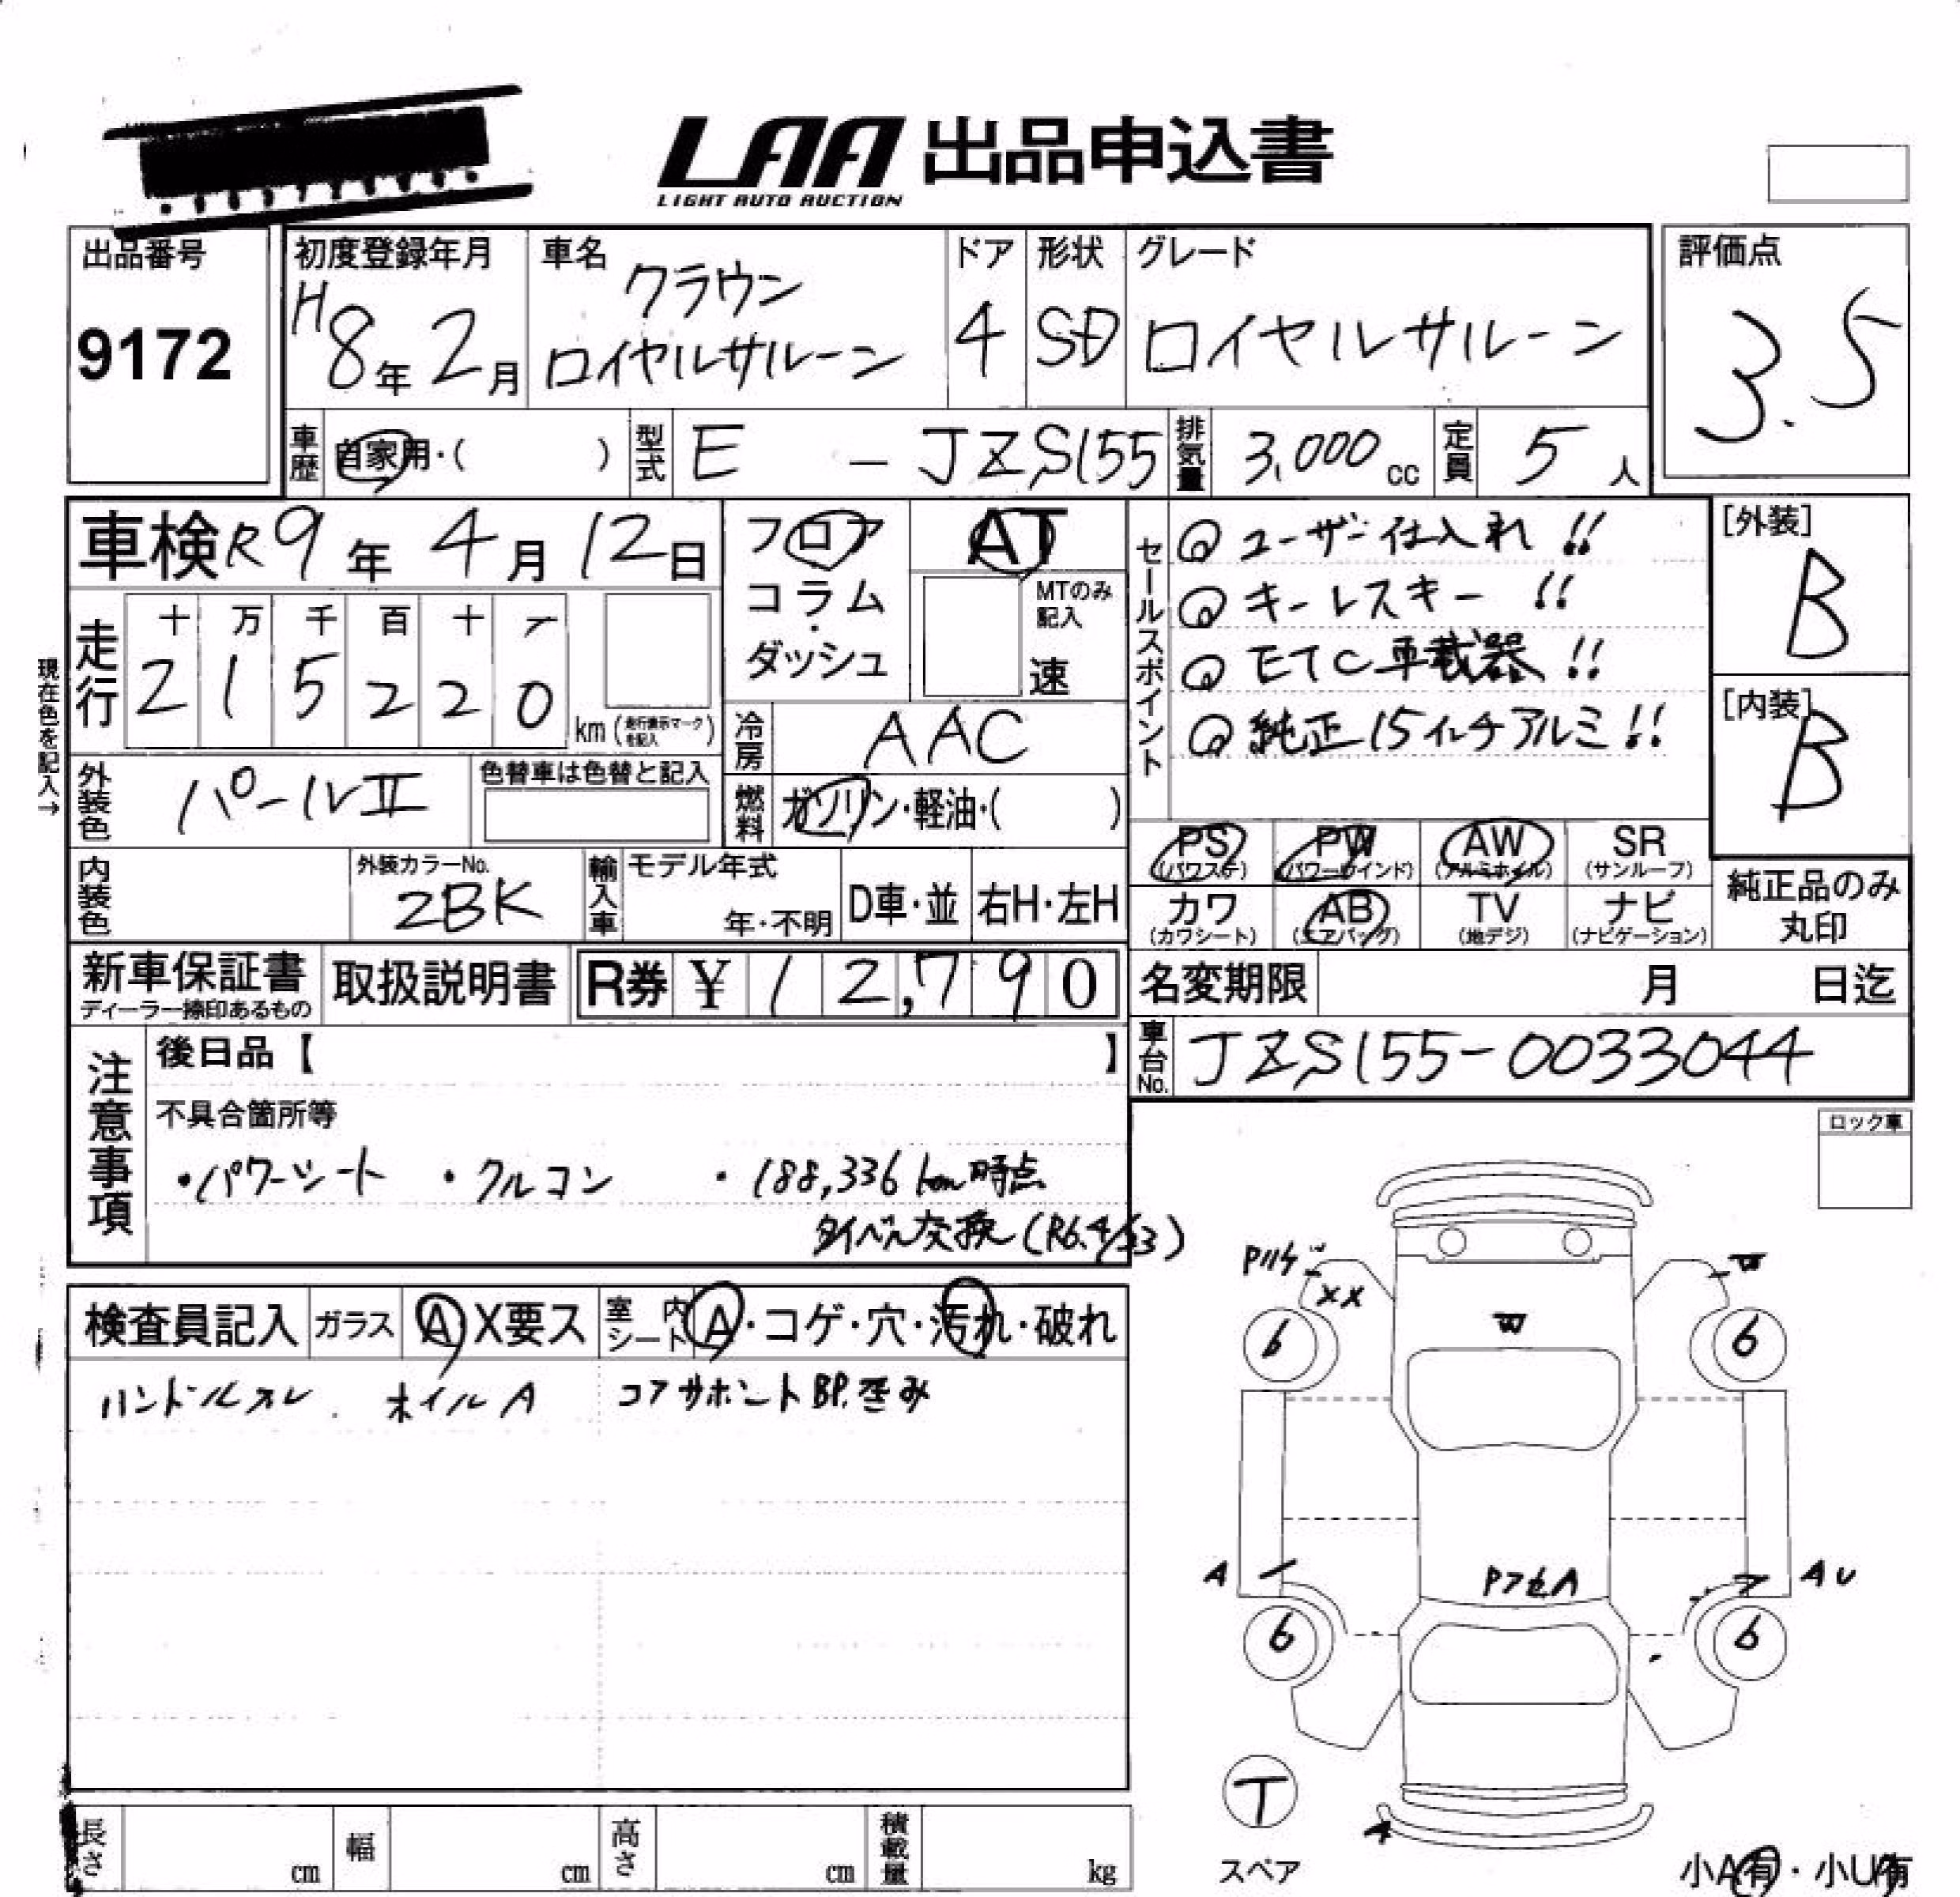 LAA 出品申込書
LIGHT AUTO AUCTION
出品番号
9172
初度登録年月
H8年2月
車名
クラウン
ロイヤルサルーン
ドア
4
形状
SD
グレード
ロイヤルサルーン
評価点
3.5
車歴
自家用・( )
型式
E - JZS155
排気量
3,000cc
定員
5人
車検 R9年4月12日
フロア
コラム
・
ダッシュ
AT
MTのみ
記入
速
セールスポイント
ユーザー仕入れ!!
キーレスキー!!
ETC車載器!!
純正15インチアルミ!!
[外装]
B
[内装]
B
現在色を記入→
走行
十 万 千 百 十 一
2 1 5 2 2 0 km (走行表示マークを記入)
冷房
AAC
外装色
パールII
色替車は色替と記入
燃料
ガソリン・軽油・( )
PS
(パワステ)
PW
(パワーウインド)
AW
(アルミホイル)
SR
(サンルーフ)
カワ
(カワシート)
AB
(エアバッグ)
TV
(地デジ)
ナビ
(ナビゲーション)
純正品のみ
丸印
内装色
外装カラーNo.
2BK
輸入車
モデル年式
年・不明
D車・並
右H・左H
新車保証書
ディーラー捺印あるもの
取扱説明書
R券 ¥ 12,790
名変期限 月 日迄
車台No.
JZS155-0033044
注意事項
後日品【 】
不具合箇所等
・パワーシート ・クルコン ・188,336km時点
タイベル交換(R6.4/23)
ロック車
検査員記入
ガラス
A X要ス
室内シート
A・コゲ・穴・汚れ・破れ
ハンドルスレ. ホイルA コアサポートBP.歪み
Pハゲ
XX
W
W
6
6
A
PアセA
AU
6
6
T
スペア
A
小A有・小U有
長さ cm
幅 cm
高さ cm
積載量 kg